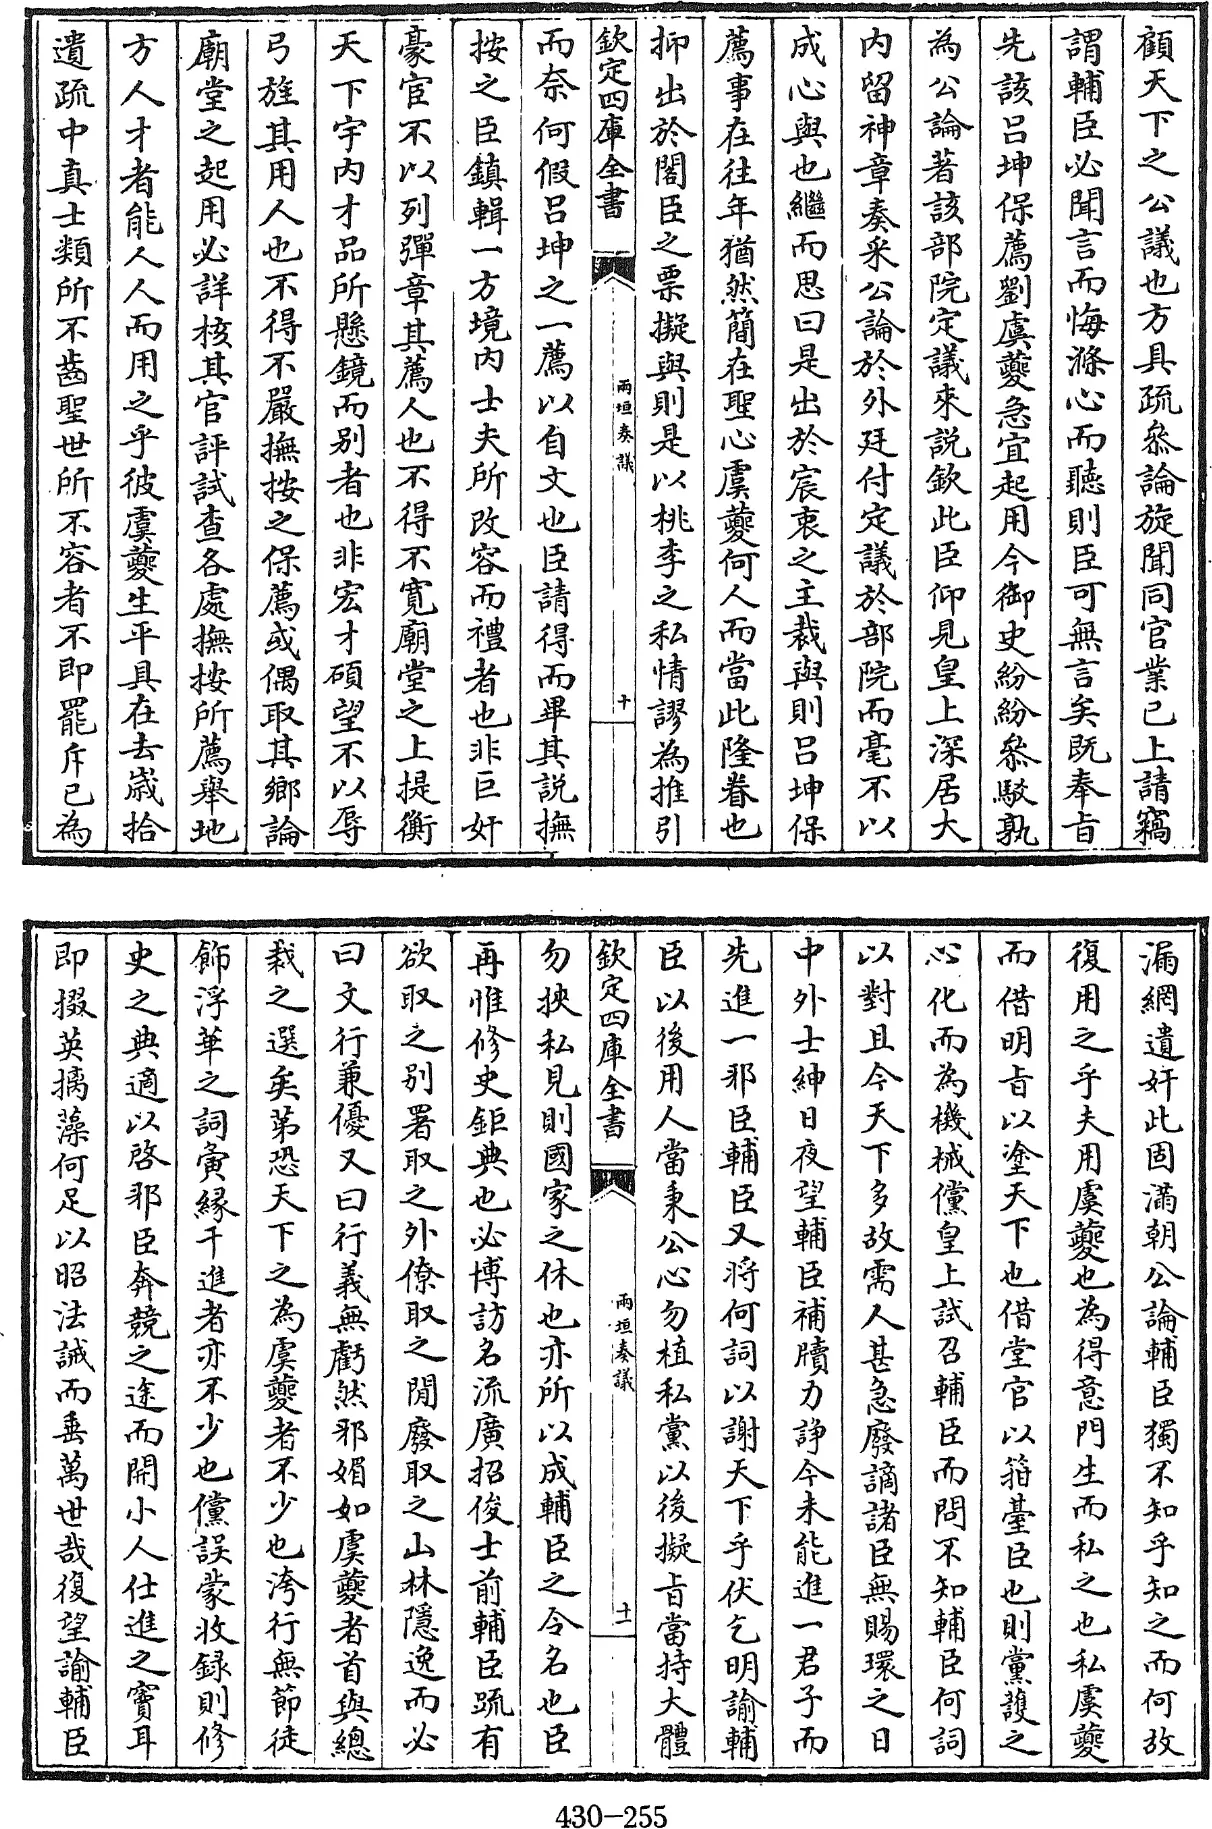 顧天下之公議也方具疏叅論旋聞同官業已上請竊
謂輔臣必聞言而悔滌心而聽則臣可無言矣既奉旨
先該吕坤保薦劉虞夔急宜起用今御史紛紛叅駁孰
為公論著該部院定議來説欽此臣仰見皇上深居大
内留神章奏采公論於外廷付定議於部院而毫不以
成心與也繼而思曰是出於宸衷之主裁與則吕坤保
薦事在往年猶然簡在聖心虞夔何人而當此隆眷也
抑出於閣臣之票擬與則是以桃李之私情謬為推引
欽定四庫全書
兩垣奏議
十
而奈何假吕坤之一薦以自文也臣請得而畢其説撫
按之臣鎮輯一方境内士夫所改容而禮者也非巨奸
豪宦不以列彈章其薦人也不得不寛廟堂之上提衡
天下宇内才品所懸鏡而别者也非宏才碩望不以辱
弓旌其用人也不得不嚴撫按之保薦或偶取其鄉論
廟堂之起用必詳核其官評試查各處撫按所薦舉地
方人才者能人人而用之乎彼虞夔生平具在去嵗拾
遺疏中真士類所不齒聖世所不容者不即罷斥已為
漏網遺奸此固滿朝公論輔臣獨不知乎知之而何故
復用之乎夫用虞夔也為得意門生而私之也私虞夔
而借明旨以塗天下也借堂官以箝臺臣也則黨護之
心化而為機械儻皇上試召輔臣而問不知輔臣何詞
以對且今天下多故需人甚急廢謫諸臣無賜環之日
中外士紳日夜望輔臣補牘力諍今未能進一君子而
先進一邪臣輔臣又將何詞以謝天下乎伏乞明諭輔
臣以後用人當秉公心勿植私黨以後擬旨當持大體
欽定四庫全書
兩垣奏議
十一
勿挾私見則國家之休也亦所以成輔臣之令名也臣
再惟修史鉅典也必博訪名流廣招俊士前輔臣疏有
欲取之别署取之外僚取之閒廢取之山林隱逸而必
曰文行兼優又曰行義無虧然邪媚如虞夔者首與總
裁之選矣第恐天下之為虞夔者不少也洿行無節徒
飾浮華之詞夤緣干進者亦不少也儻誤蒙收録則修
史之典適以啓邪臣奔競之途而開小人仕進之竇耳
即掇英摛藻何足以昭法誡而垂萬世哉復望諭輔臣
430-255